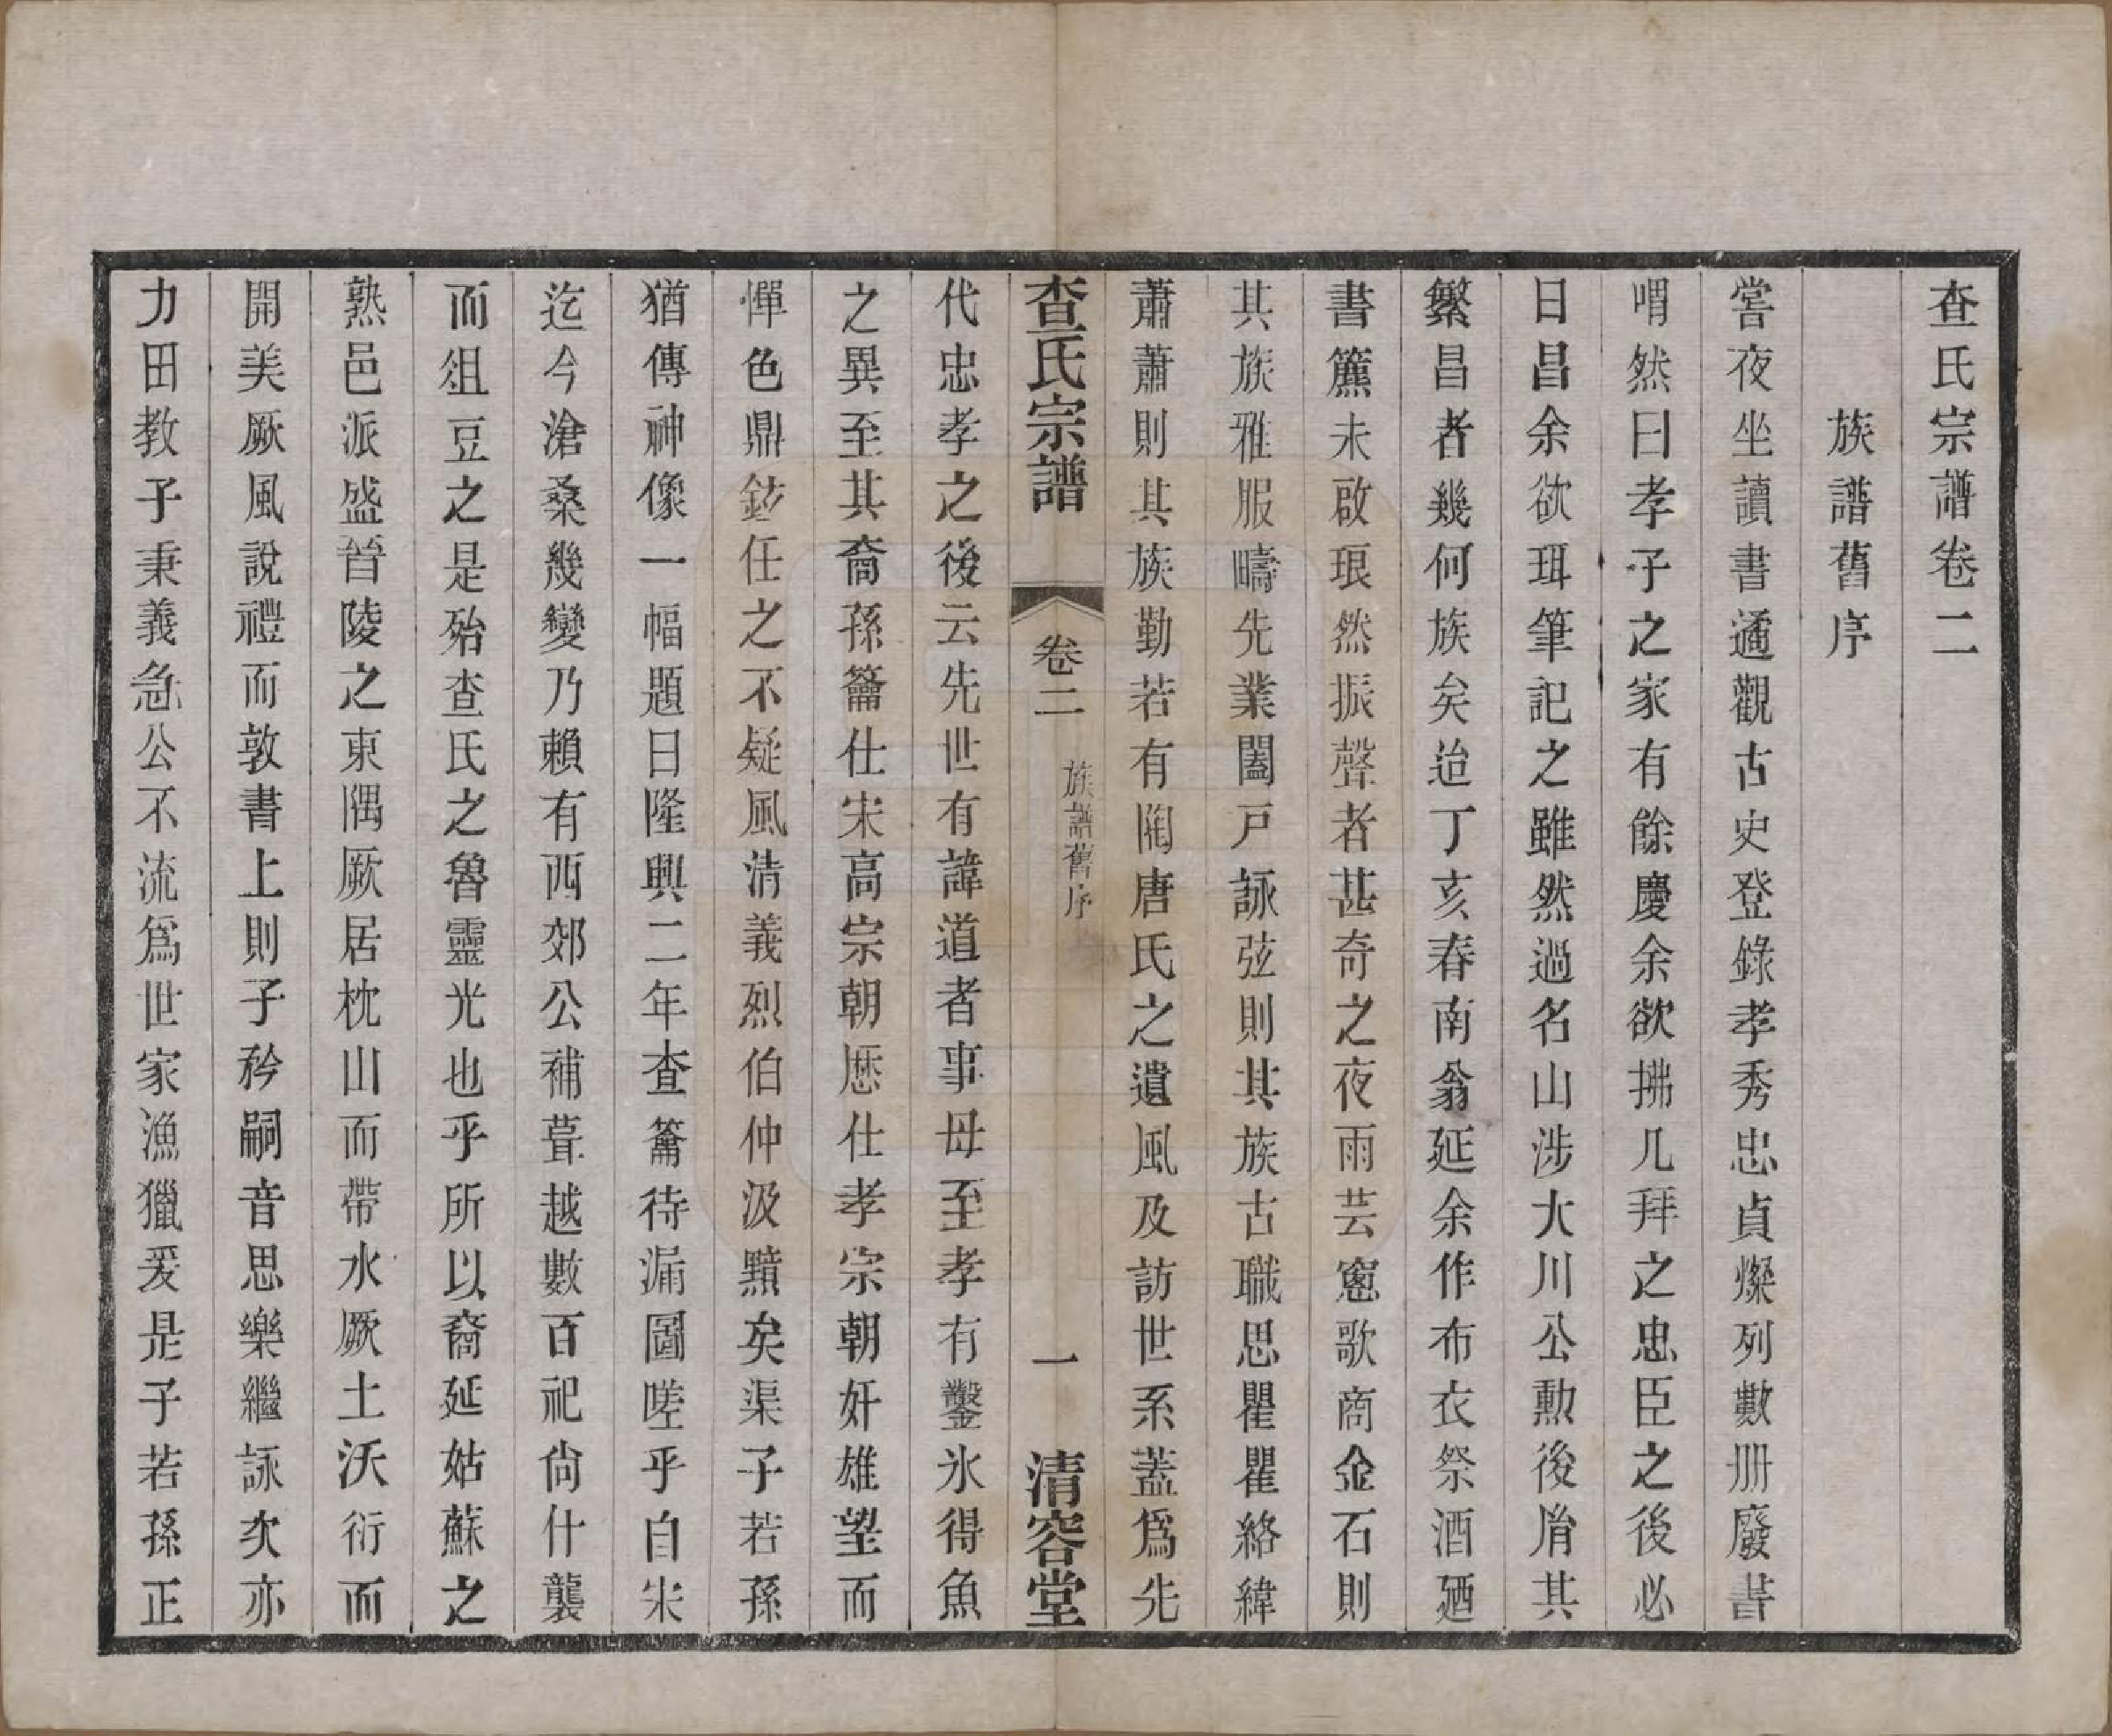 查氏宗譜卷二
族譜舊序
嘗夜坐讀書遹觀古史登錄孝秀忠貞燦列數册廢書
喟然曰孝子之家有餘慶余欲拂几拜之忠臣之後必
日昌余欲珥筆記之雖然過名山涉大川公勳後胤其
繁昌者幾何族矣迨丁亥春南翁延余作布衣祭酒廼
書簏未啟琅然振聲者甚奇之夜雨芸窻歌商金石則
其族雅服疇先業闔戸詠弦則其族古職思瞿瞿絡緯
蕭蕭則其族勤若有陶唐氏之遺風及訪世系蓋爲先
查氏宗譜
卷二
族譜舊序
一
清容堂
代忠孝之後云先世有諱道者事母至孝有鑿氷得魚
之異至其裔孫籥仕宋高宗朝歷仕孝宗朝奸雄望而
憚色鼎鉉任之不疑風清義烈伯仲汲黯矣渠子若孫
猶傳神像一幅題曰隆興二年查籥待漏圖嗟乎自宋
迄今滄桑幾變乃賴有西郊公補葺越數百祀尙什襲
而俎豆之是殆查氏之魯靈光也乎所以裔延姑蘇之
熟邑派盛晉陵之東隅厥居枕山而帶水厥土沃衍而
開美厥風說禮而敦書上則子衿嗣音思樂繼詠次亦
力田教子秉義急公不流爲世家漁獵爰是子若孫正